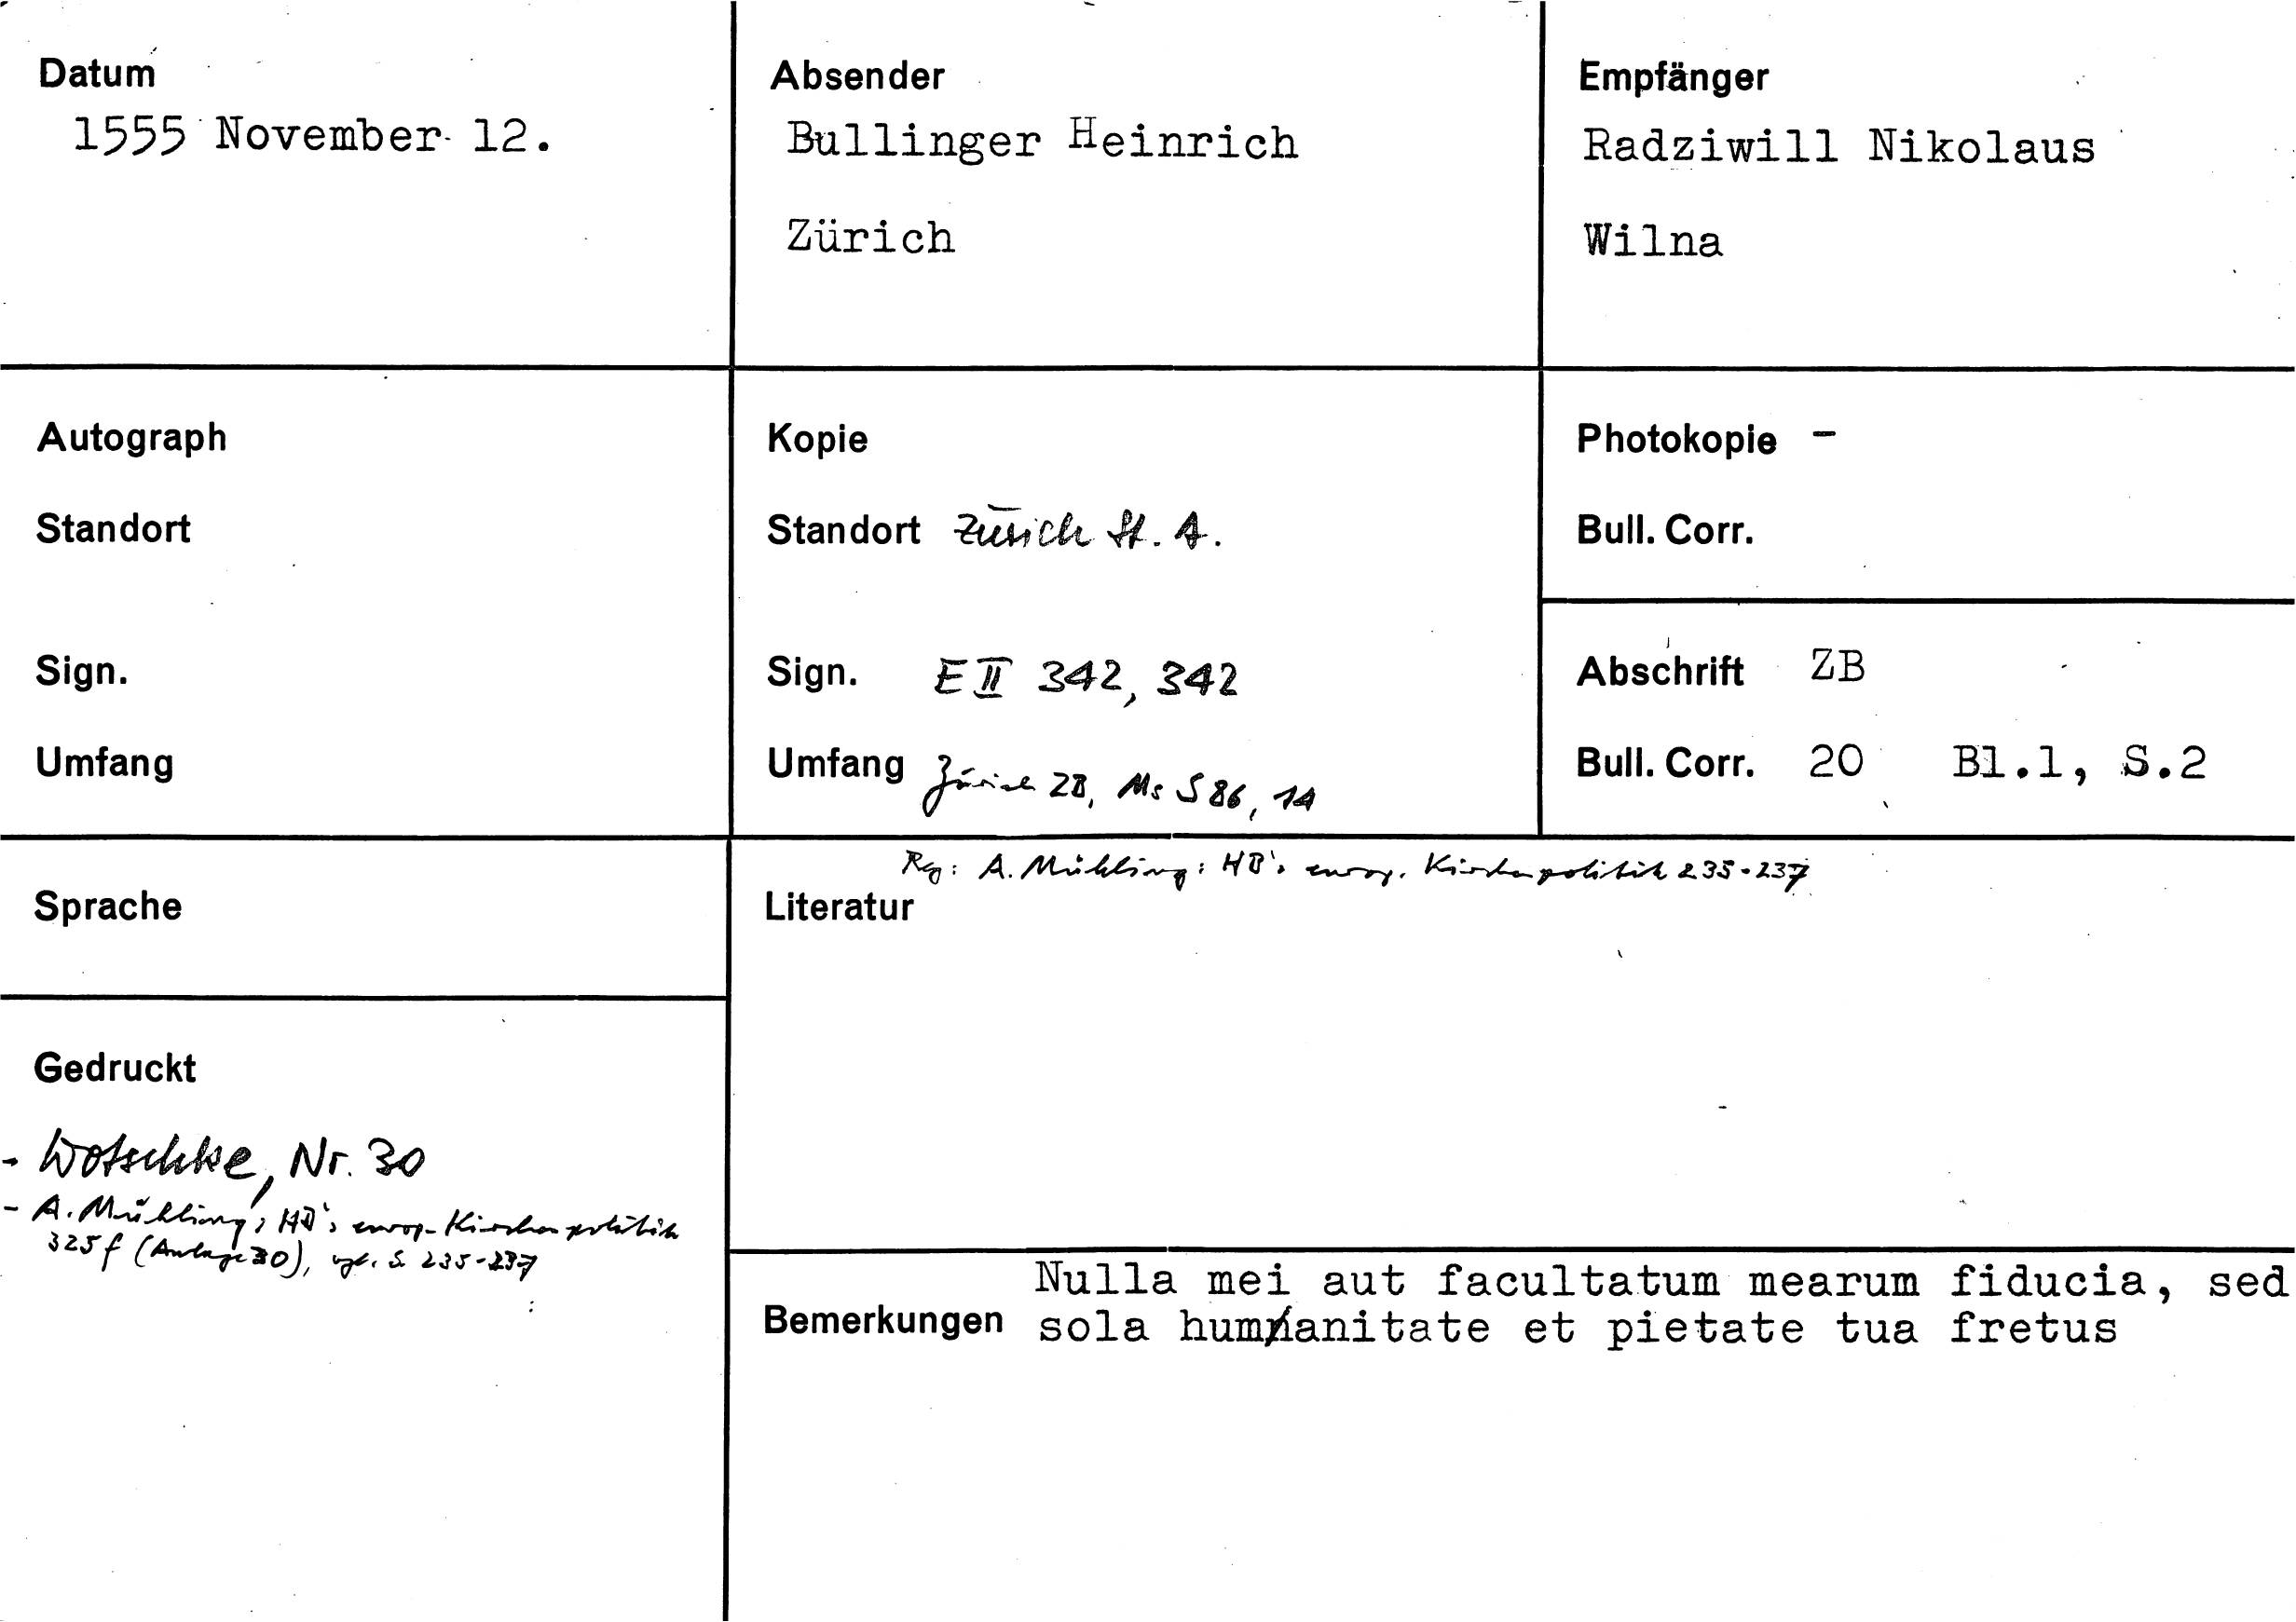 Datum
1555 November 12.
Absender
Bullinger Heinrich
Zürich
Empfänger
Radziwill Nikolaus
Wilna
Autograph
Standort
Sign.
Umfang
Kopie
Standort Zürich St. A.
Sign. E II 342, 342
Umfang Zürich ZB, Ms S 86, 14
Photokopie -
Bull. Corr.
Abschrift ZB
Bull. Corr. 20 Bl.1, S.2
Sprache
Reg: A. Mühling: HB's europ. Kirchenpolitik 235-237
Literatur
Gedruckt
- Wotschke, Nr. 30
- A. Mühling, HB's europ. Kirchenpolitik
325f (Anlage 30), vgl. S. 235-237
Nulla mei aut facultatum mearum fiducia, sed
Bemerkungen sola humanitate et pietate tua fretus